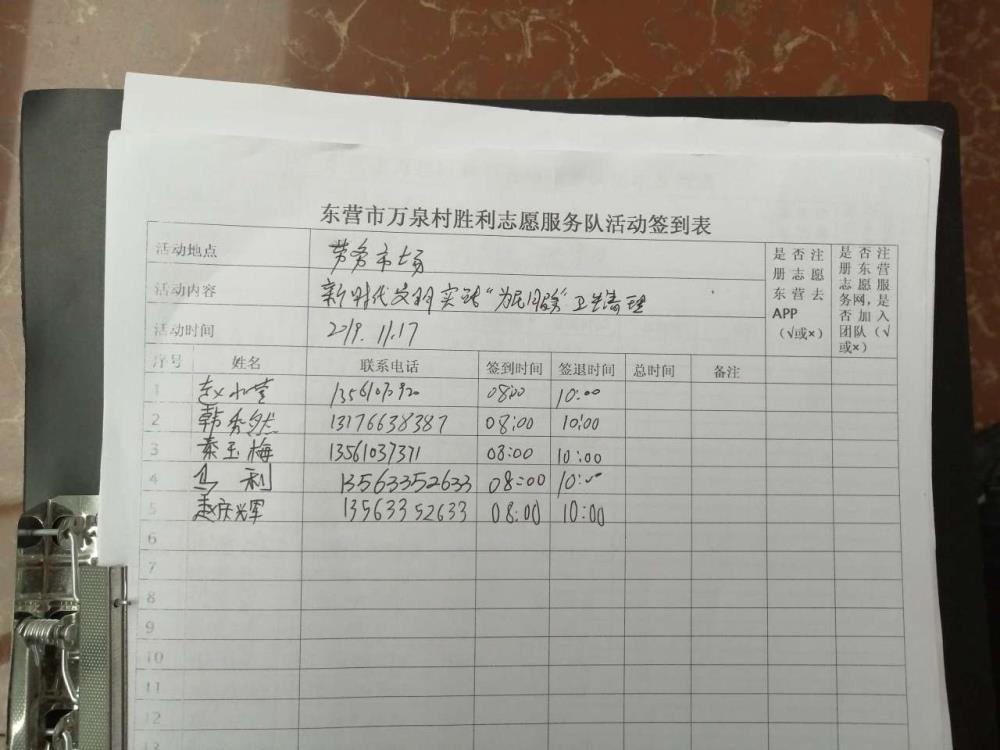 东营市万泉村胜利志愿服务队活动签到表
活动地点 劳务市场 是否注册志愿东营去APP（√或×） 是否注册东营志愿服务网，是否加入团队（√或×）
活动内容 新时代文明实践“为民服务”卫生清理
活动时间 2019.11.17
序号 姓名 联系电话 签到时间 签退时间 总时间 备注
1 08:00 10:00
2 韩秀然 13176638387 08:00 10:00
3 秦玉梅 13561037371 08:00 10:00
4 利 13563352633 08:00 10:00
5 赵庆军 13563352633 08:00 10:00
6
7
8
9
10
11
12
13